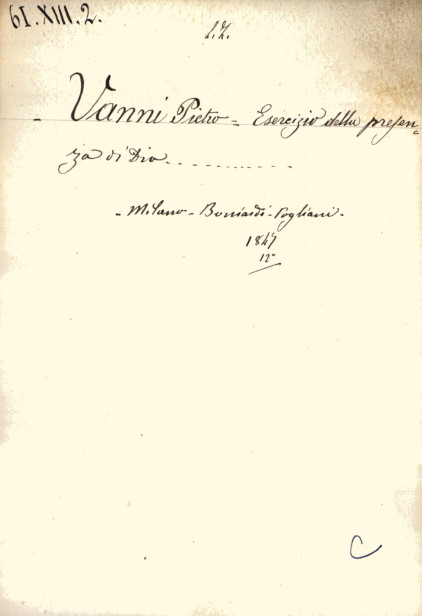 61.XIII.2.
- Vanni Pietro = Esercizio della presen-
za di Dio - - - - - - - - -
- Milano - Boniardi - Pogliani -
1847
12°
C